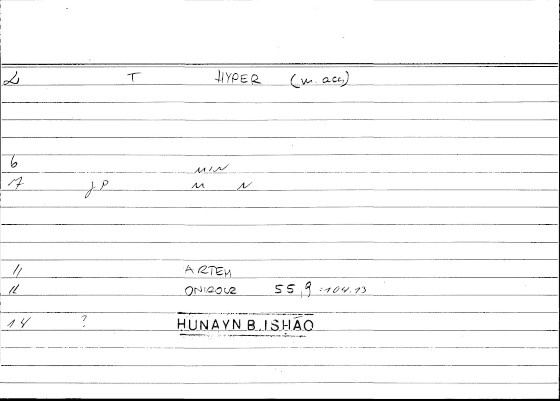 2 T HYPER (m. acc)
6 MIN
7 JP M N
11 ARTEM
12 ONIROCR 55,9:104.13
14 ? HUNAYN B. ISHĀQ